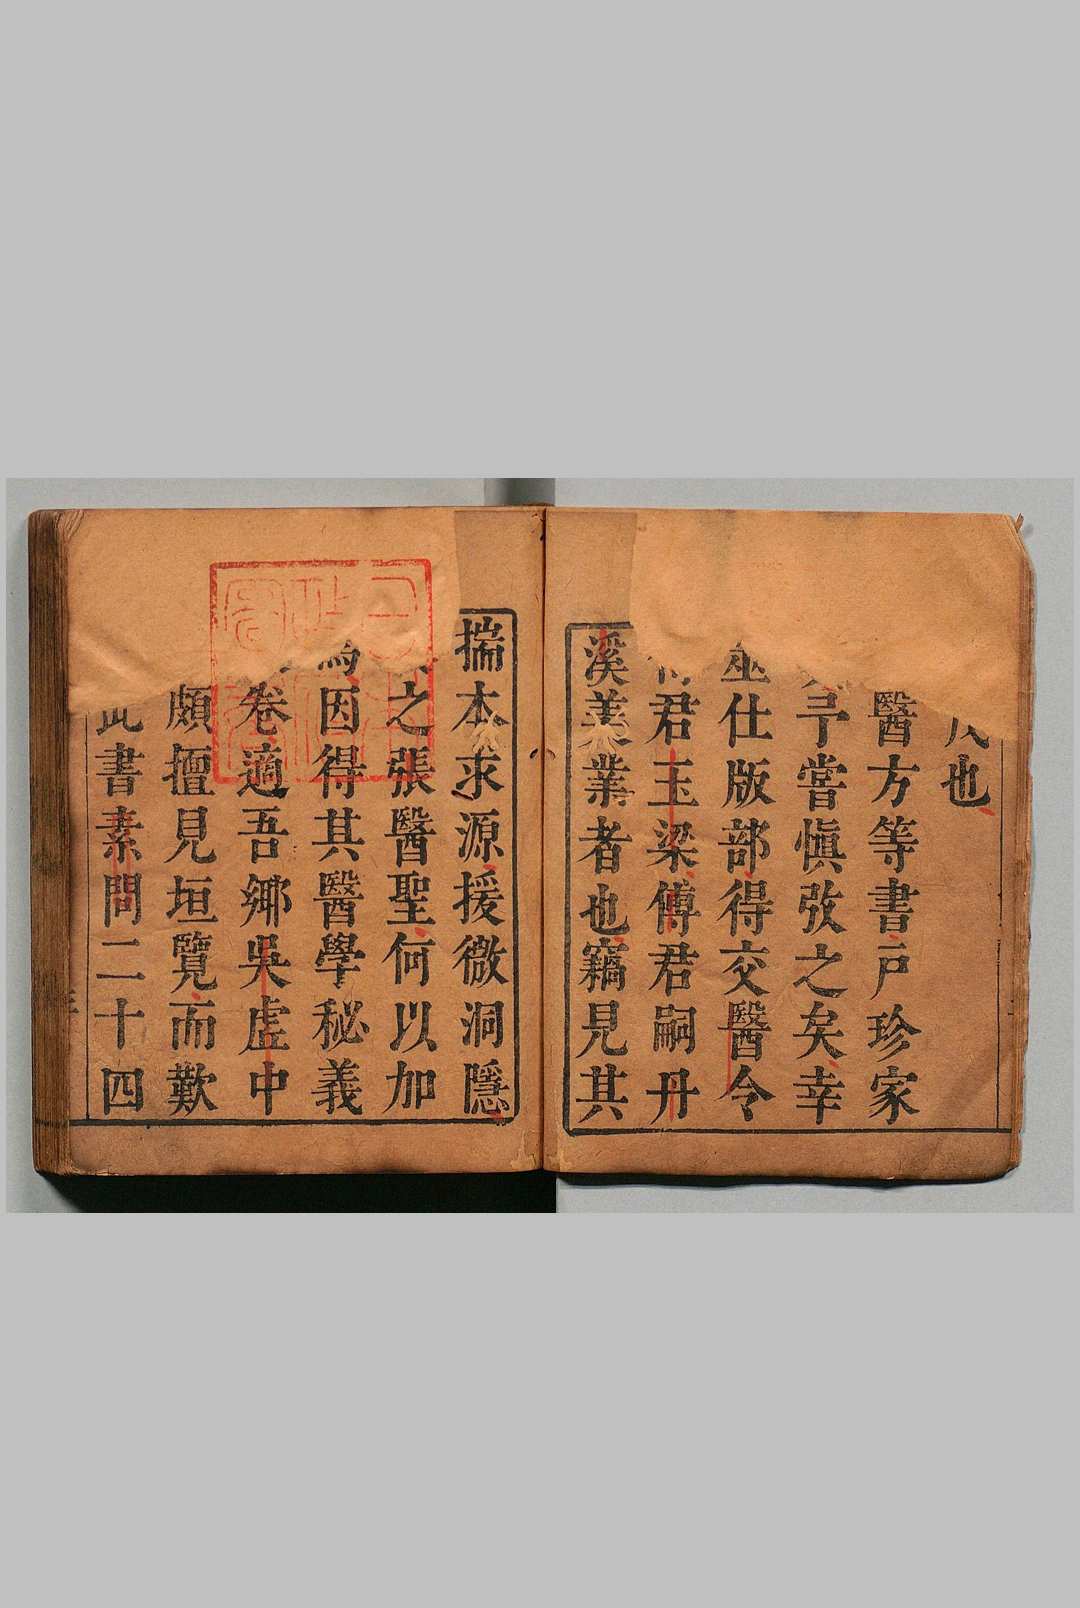 也
醫方等書戸珍家
予嘗愼攷之矣幸
仕版部得交醫令
君玉梁傅君嗣丹
溪業者也竊見其
揣本求源援微洞隱
之張醫聖何以加
焉因得其醫學秘義
卷適吾鄉吳虛中
頗擅見垣覽而歎
此書素問二十四